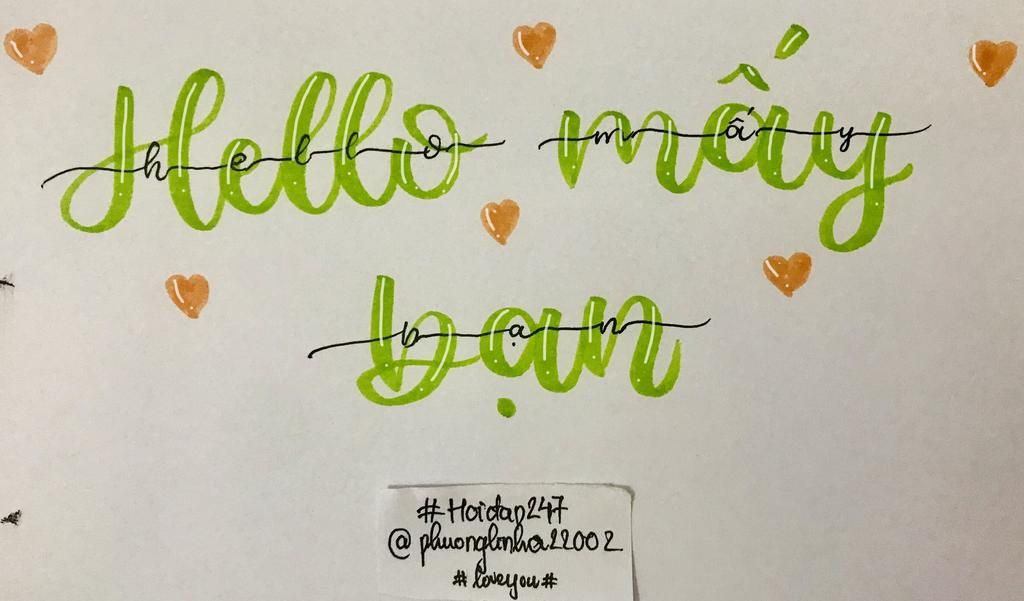 Hello mấy
hello mấy
bạn
bạn
#Hoidap247
@phuonglinha22002
#loveyou#